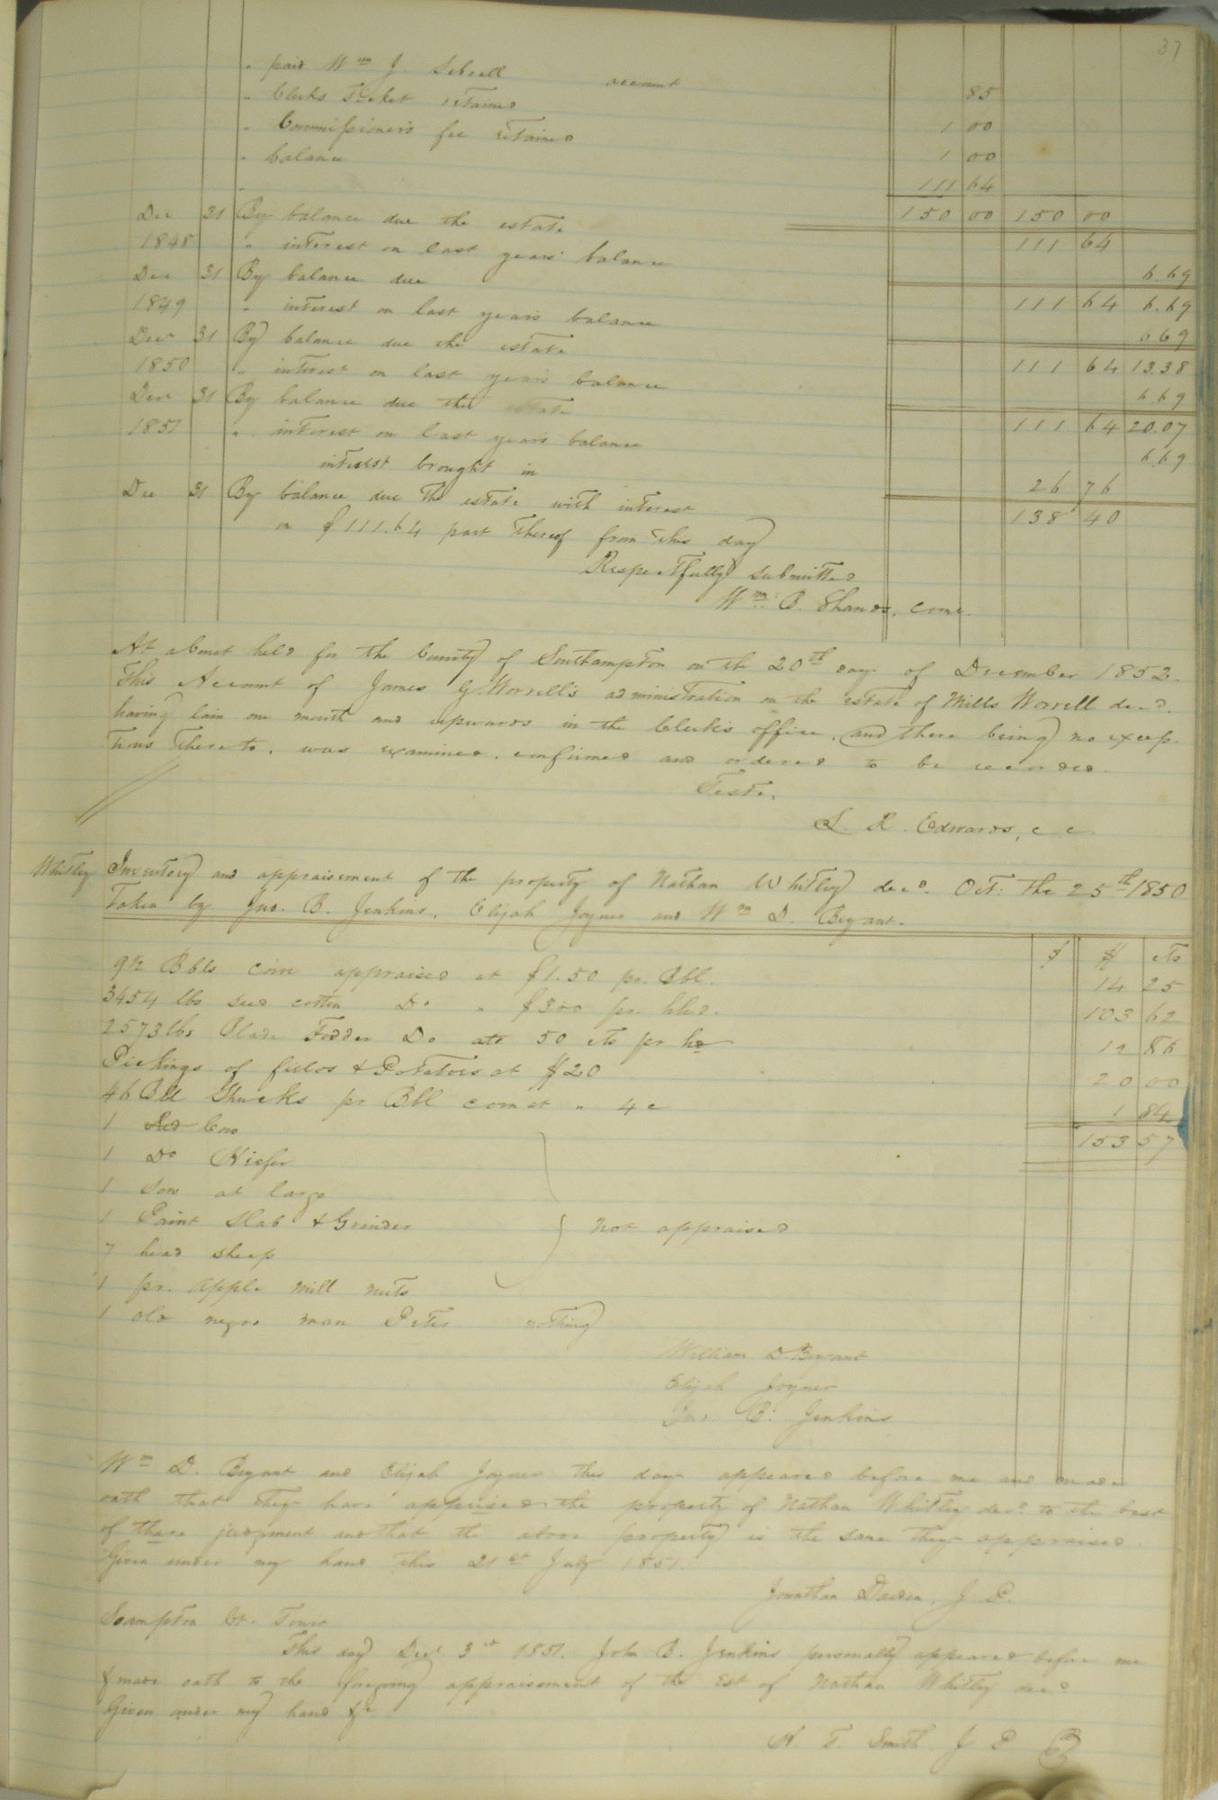 37
" paid Wm J. Sebrell account 85
" Clerks Ticket retained 1 00
" Commissioners fee retained 1 00
" balance 111 64
150 00 150 00
Dec 31 By balance due the estate 111 64
1848 " interest on last years balance 6.69
Dec 31 By balance due 111 64 6.69
1849 " interest on last years balance 6 69
Dec 31 By balance due the estate 111 64 13.38
1850 " interest on last years balance 6.69
Dec 31 By balance due the estate 111 64 20.07
1851 " interest on last years balance 6.69
interest brought in 26 76
Dec 31 By balance due the estate with interest 138 40
on $111.64 part thereof from this day
Respectfully submitted
Wm B. Shands, com.
At a Court held for the County of Southampton on the 20th day of December 1852.
This Account of James G. Worrell's administration on the estate of Mills Worrell decd.
having lain one month and upwards in the Clerk's office, and there being no excep
tions thereto, was examined, confirmed and ordered to be recorded.
Teste,
L. R. Edwards, c c
Whitley Inventory and appraisement of the property of Nathan Whitley decd. Oct: the 25th 1850
Taken by Jno. B. Jenkins, Elijah Joyner and Wm D. Bryant.
$ $ cts
9½ Bbls corn appraised at $1.50 pr. Bbl. 14 25
3454 lbs seed cotton Do " $300 pr. hhd. 103 62
2573 lbs Blade Fodder Do at 50 cts pr hd 12 86
Pickings of fields & Potatoes at $20 20 00
46 Bbl Shucks pr Bbl corn at " 4c 1 84
153 57
1 Red Cow
1 Do Hiefer
1 Sow at large
1 Paint Slab & Grinder not appraised
7 head sheep
1 pr. apple mill nuts
1 old negro man Peter nothing
William D. Bryant
Elijah Joyner
Jno. B. Jenkins
Wm D. Bryant and Elijah Joyner this day appeared before me and made
oath that they have apprised the property of Nathan Whitley decd to the best
of thare judgment and that the above property is the same they appraised.
Given under my hand this 21st July 1851.
Jonathan Darden, J. P.
Soampton Ct. Towit
This day Decr 3rd 1851. John B. Jenkins personally appeared before me
& made oath to the foregoing appraisement of the Est of Nathan Whitley decd
Given under my hand &c
R. T. Smith J P